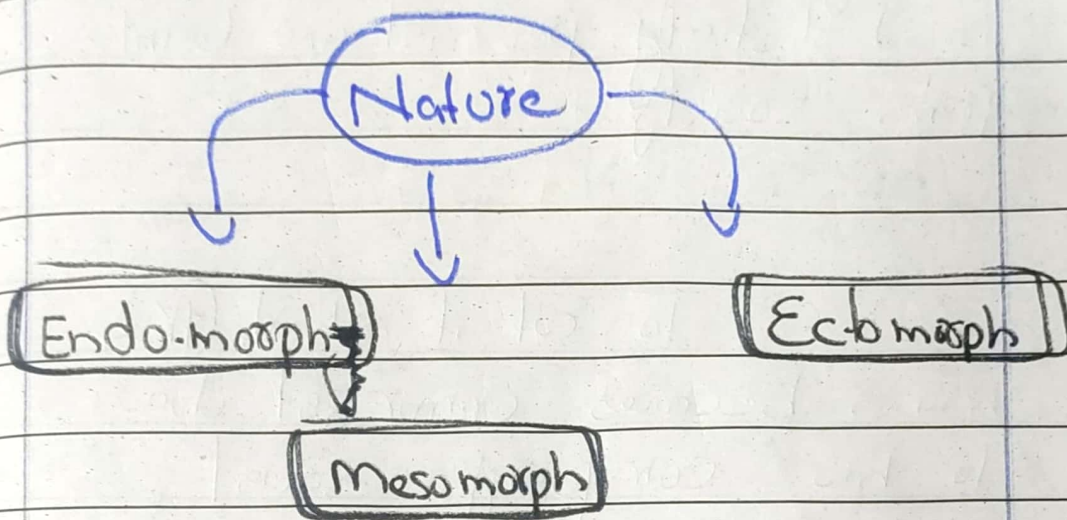 Nature
Endo-morph
Ectomorph
Mesomorph